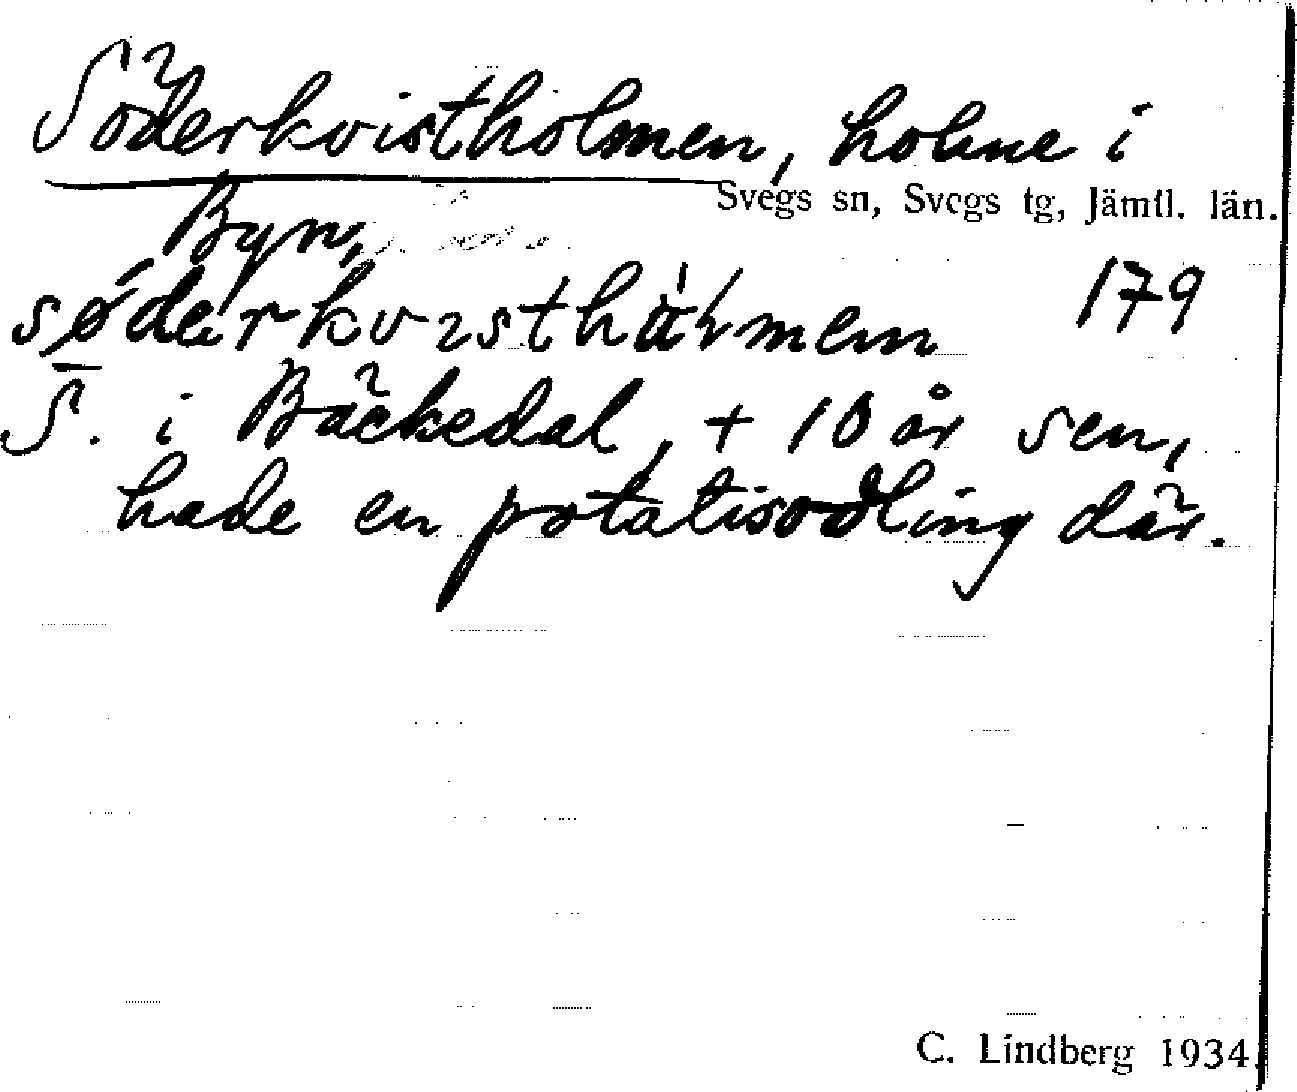 Söderkvistholmen, holme i
Svegs sn, Svegs tg, Jämtl. län.
Byn,
179
S. i Bäckedal, + 10 år sen,
hade en potatisodling där.
C. Lindberg 1934.